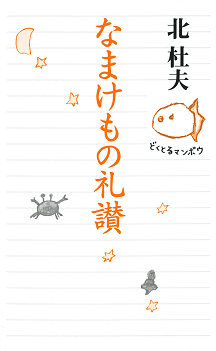 北杜夫
どくとるマンボウ
なまけもの礼讃